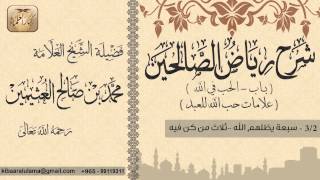 شرح رياض الصالحين
( باب - الحب في الله )
( علامات حب الله للعبد )
3/2 - سبعة يظلهم الله - ثلاث من كن فيه
فضيلة الشيخ العلامة
محمد بن صالح العثيمين
رحمه الله تعالى
kibaarulama@gmail.com | +965 - 99119311